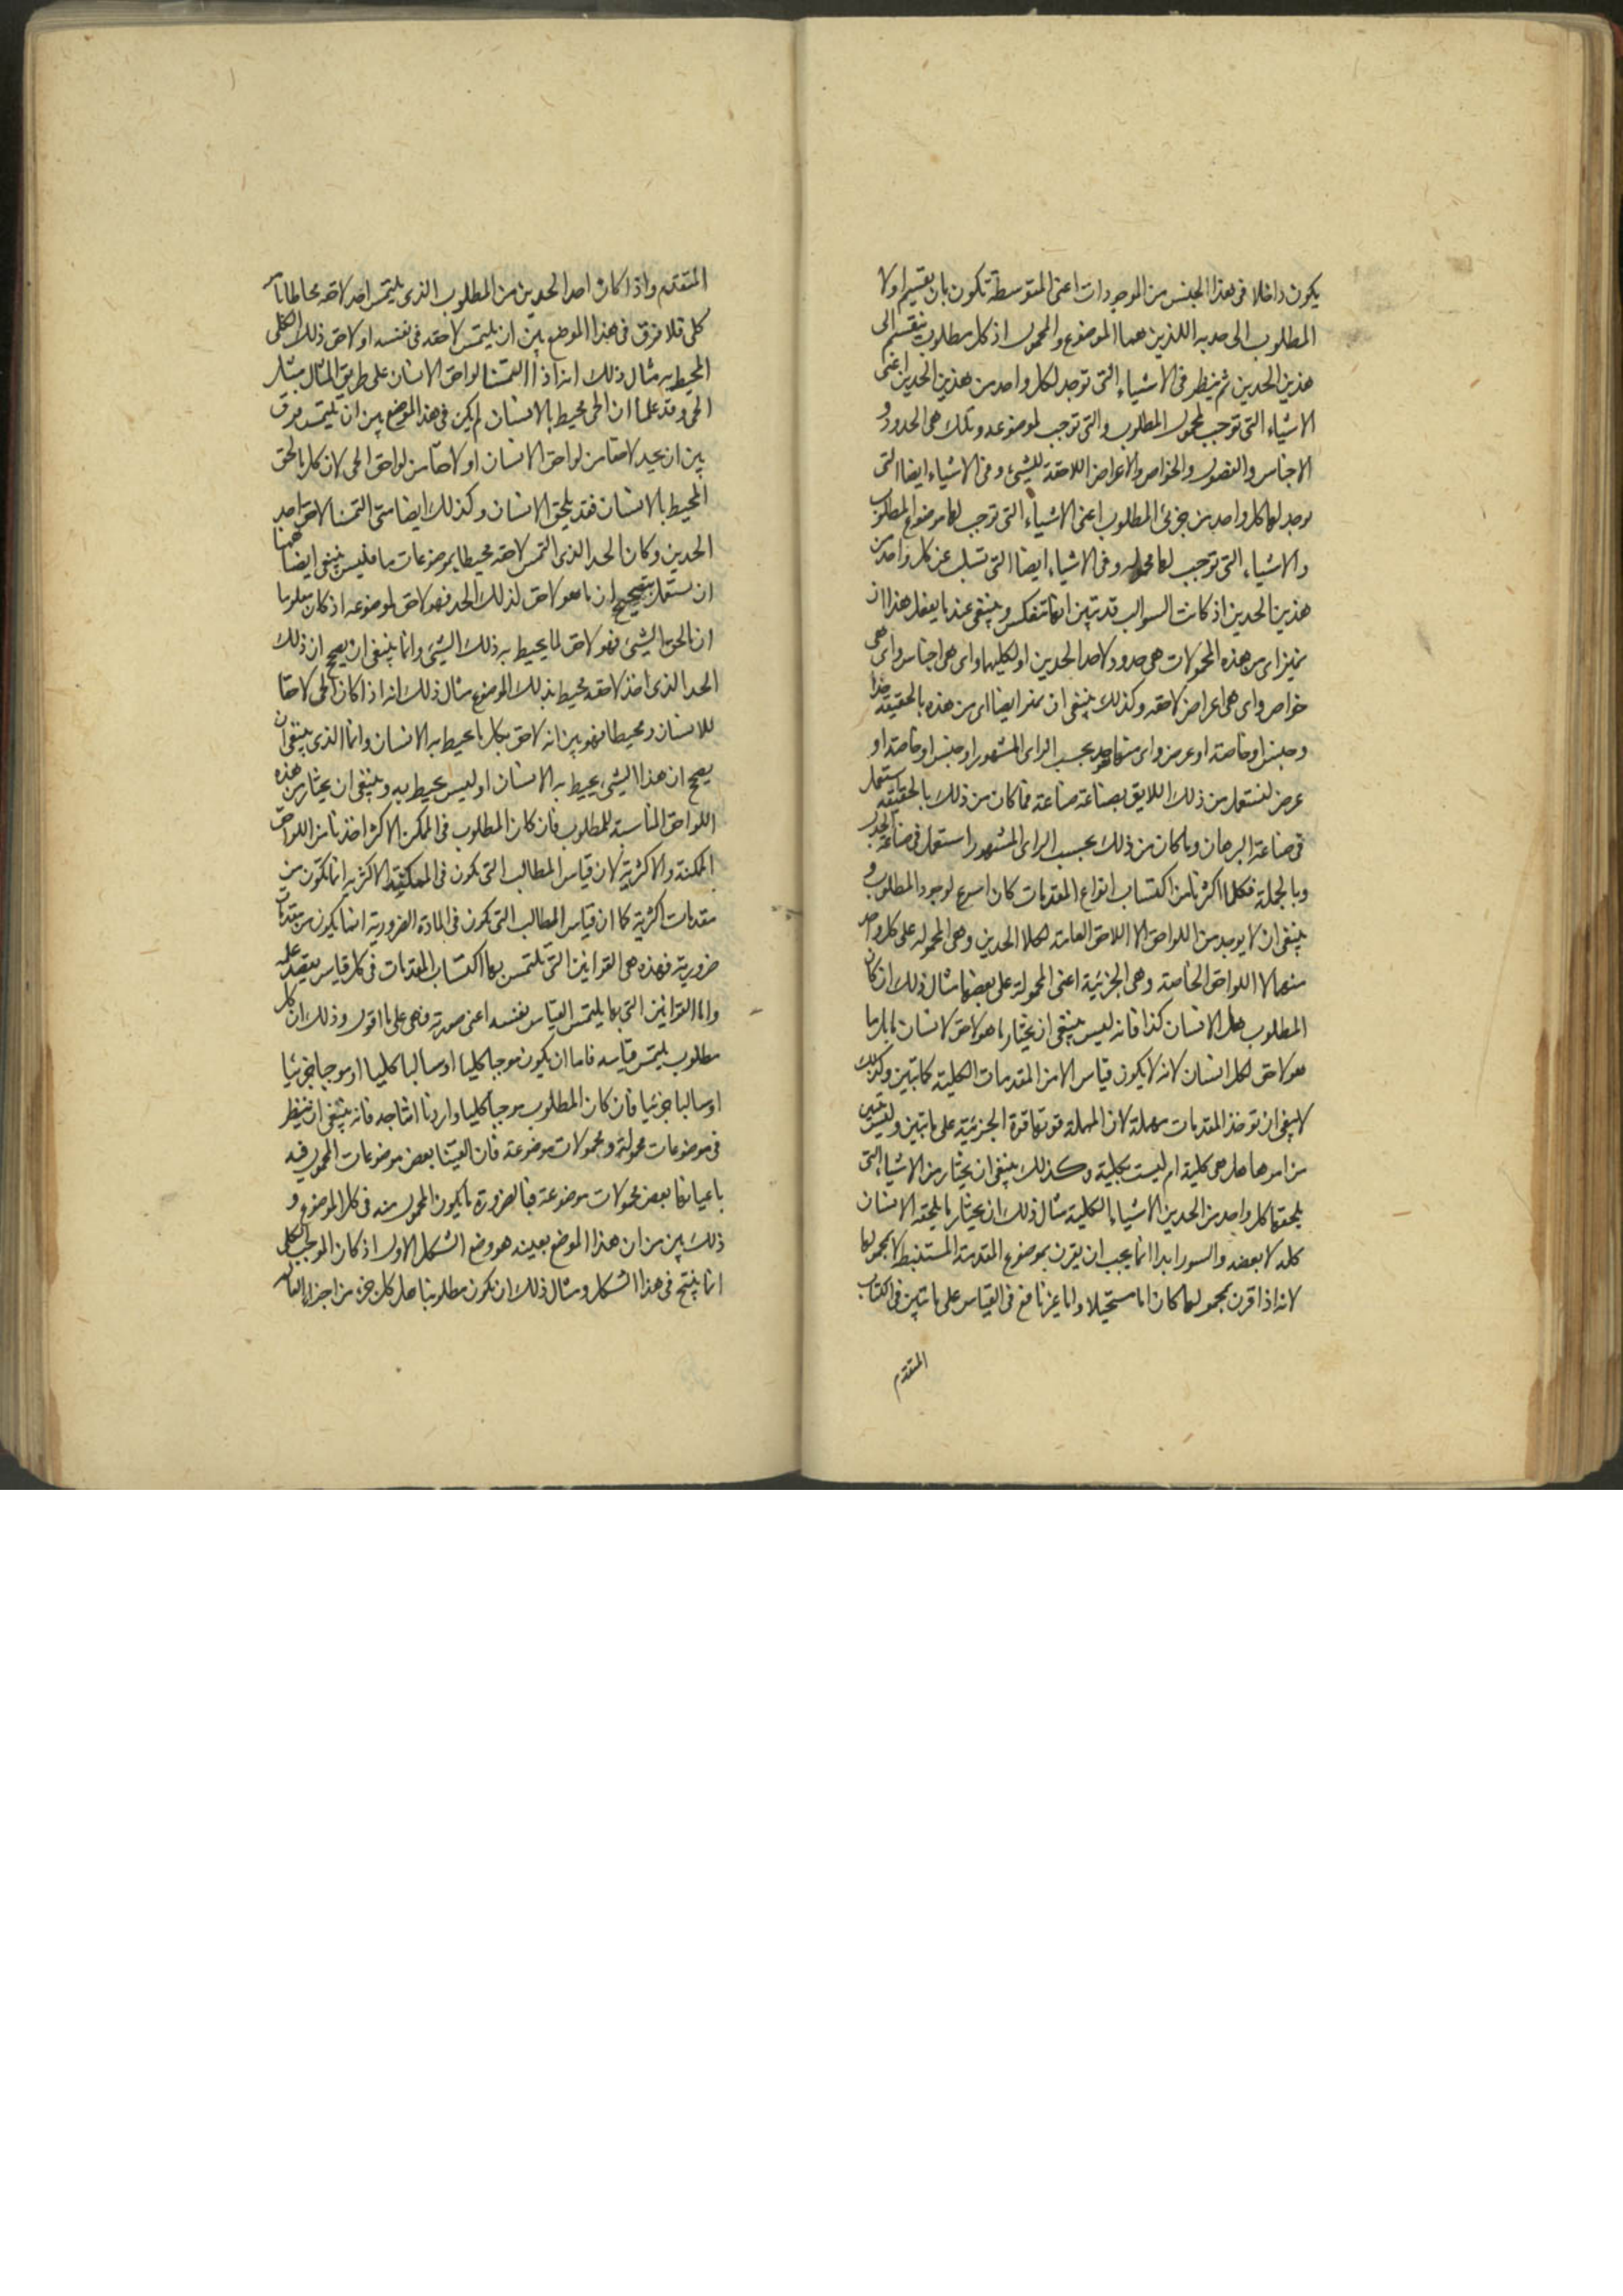 يكون داخلا فى هذا الجنس من الموجودات اعنى المتوسطة تكون بان يقسم اولا
المطلوب الى حديه اللذين هما الموضوع والمحمول اذ كل مطلوب ينقسم الى
هذين الحدين ثم ينظر فى الاشياء التى توجد لكل واحد من هذين الحدين اعنى
الاشياء التى توجب لمحمول المطلوب والتى توجب لموضوعه وتلك هى الحدود و
الاجناس والفصول والخواص والاعراض اللاحقة للشىء وفى الاشياء ايضا التى
يوجد لها كل واحد من جزئى المطلوب اعنى الاشياء التى توجب لها موضوع المطلوب
والاشياء التى توجب لها محموله وفى الاشياء ايضا التى تسلب عن كل واحد من
هذين الحدين اذ كانت السوالب قد تبين انها تنعكس وينبغى عندما يفعل هذا ان
يميز اى من هذه المحمولات هى حدود لاحد الحدين او لكليهما واى هى اجناس واى هى
خواص واى هى اعراض لاحقه وكذلك ينبغى ان يميز ايضا اى من هذه بالحقيقة حدا
وجنس او خاصة او عرض واى منها هو حد بحسب الراى المشهور او جنس او خاصة او
عرض لنستعمل من ذلك اللايق بصناعة صناعة فما كان من ذلك بالحقيقة استعمل
فى صناعة البرهان وما كان من ذلك بحسب الراى المشهور استعمل فى صناعة الجدل
وبالجملة فكلما اكثرنا من اكتساب انواع المقدمات كان اسرع لوجود المطلوب و
ينبغى ان لا يوجد من اللواحق الا اللاحق العامة لكلا الحدين وهى المحمولة على كل واحد
منهما لا اللواحق الخاصة وهى الجزئية اعنى المحمولة على بعضها مثال ذلك ان كان
المطلوب هل الانسان كذا فانه ليس ينبغى ان يختار ما هو لاحق لانسان ما بل ما
هو لاحق لكل انسان لانه لا يكون قياس الا من المقدمات الكلية كما تبين وكذلك
لا ينبغى ان توخذ المقدمات مهملة لان المهملة قوتها قوة الجزئية على ما تبين وليس يتبين
من امرها هل هى كلية ام ليست بكلية وكذلك ينبغى ان يختار من الاشياء التى
يلحقها كل واحد من الحدين الاشياء الكلية مثال ذلك ان يختار ما يلحقه الانسان
كله لا بعضه والسور ابدا انما يجب ان يقرن بموضوع المقدمة المستنبطة لا بمحمولها
لانه اذا قرن بمحمولها كان اما مستحيلا واما غير نافع فى القياس على ما تبين فى الكتاب
المتقدم
المتقدم واذا كان احد الحدين من المطلوب الذى يلتمس اخذ لاحقه محاطا بامر
كلى فلا فرق فى هذا الموضع بين ان يلتمس لاحقه فى نفسه او لاحق ذلك الكلى
المحيط به مثال ذلك انه اذا التمسنا لواحق الانسان على طريق المثال مثل
الحى وقد علمنا ان الحى محيط بالانسان لم يكن فى هذا الموضع بين ان يلتمس فرق
بين ان يجد لاحقا من لواحق الانسان او لاحقا من لواحق الحى لان كل ما لحق
المحيط بالانسان فقد يلحق الانسان وكذلك ايضا متى التمسنا لاحق احد
الحدين وكان الحد الذى التمس لاحقه محيطا بموضوعات ما فليس ينبغى ايضا ههنا
ان نستعمل تصحيح ان ما هو لاحق لذلك الحد فهو لاحق لموضوعه اذ كان معلوما
ان ما لحق الشىء فهو لاحق لما يحيط به ذلك الشىء وانما ينبغى ان يصحح ان ذلك
الحد الذى اخذ لاحقه محيط بذلك الموضوع مثال ذلك انه اذا كان الحى لاحقا
للانسان ومحيطا فهو بين انه لاحق بكل ما يحيط به الانسان وانما الذى ينبغى ان
يصحح ان هذا الشىء يحيط به الانسان او ليس يحيط به وينبغى ان يختار من هذه
اللواحق المناسبة للمطلوب فان كان المطلوب فى الممكن الاكثر اخذنا من اللواحق
الممكنة والاكثرية لان قياس المطالب التى تكون فى الممكنة الاكثرية انما تكون من
مقدمات اكثرية كما ان قياس المطالب التى تكون فى المادة الضرورية انما يكون من مقدمات
ضرورية فهذه هى القوانين التى تلتمس بها اكتساب المقدمات فى كل قياس يقصد عمله
واما القوانين التى بها يلتمس القياس نفسه اعنى صورته فهى على ما اقول وذلك ان كل
مطلوب يلتمس قياسه فاما ان يكون موجبا كليا او سالبا كليا او موجبا جزئيا
او سالبا جزئيا فان كان المطلوب موجبا كليا واردنا انتاجه فانه ينبغى ان ننظر
فى موضوعات محموله ومحمولات موضوعه فان الفينا بعض موضوعات المحمول فيه
باعيانها بعض محمولات موضوعه فبالضرورة ما يكون المحمول منه فى كل الموضوع و
ذلك بين من ان هذا الموضع بعينه هو وضع الشكل الاول اذ كان الموجب الكلى
انما ينتج فى هذا الشكل ومثال ذلك ان يكون مطلوبنا هل كل جزء من اجزاء العالم